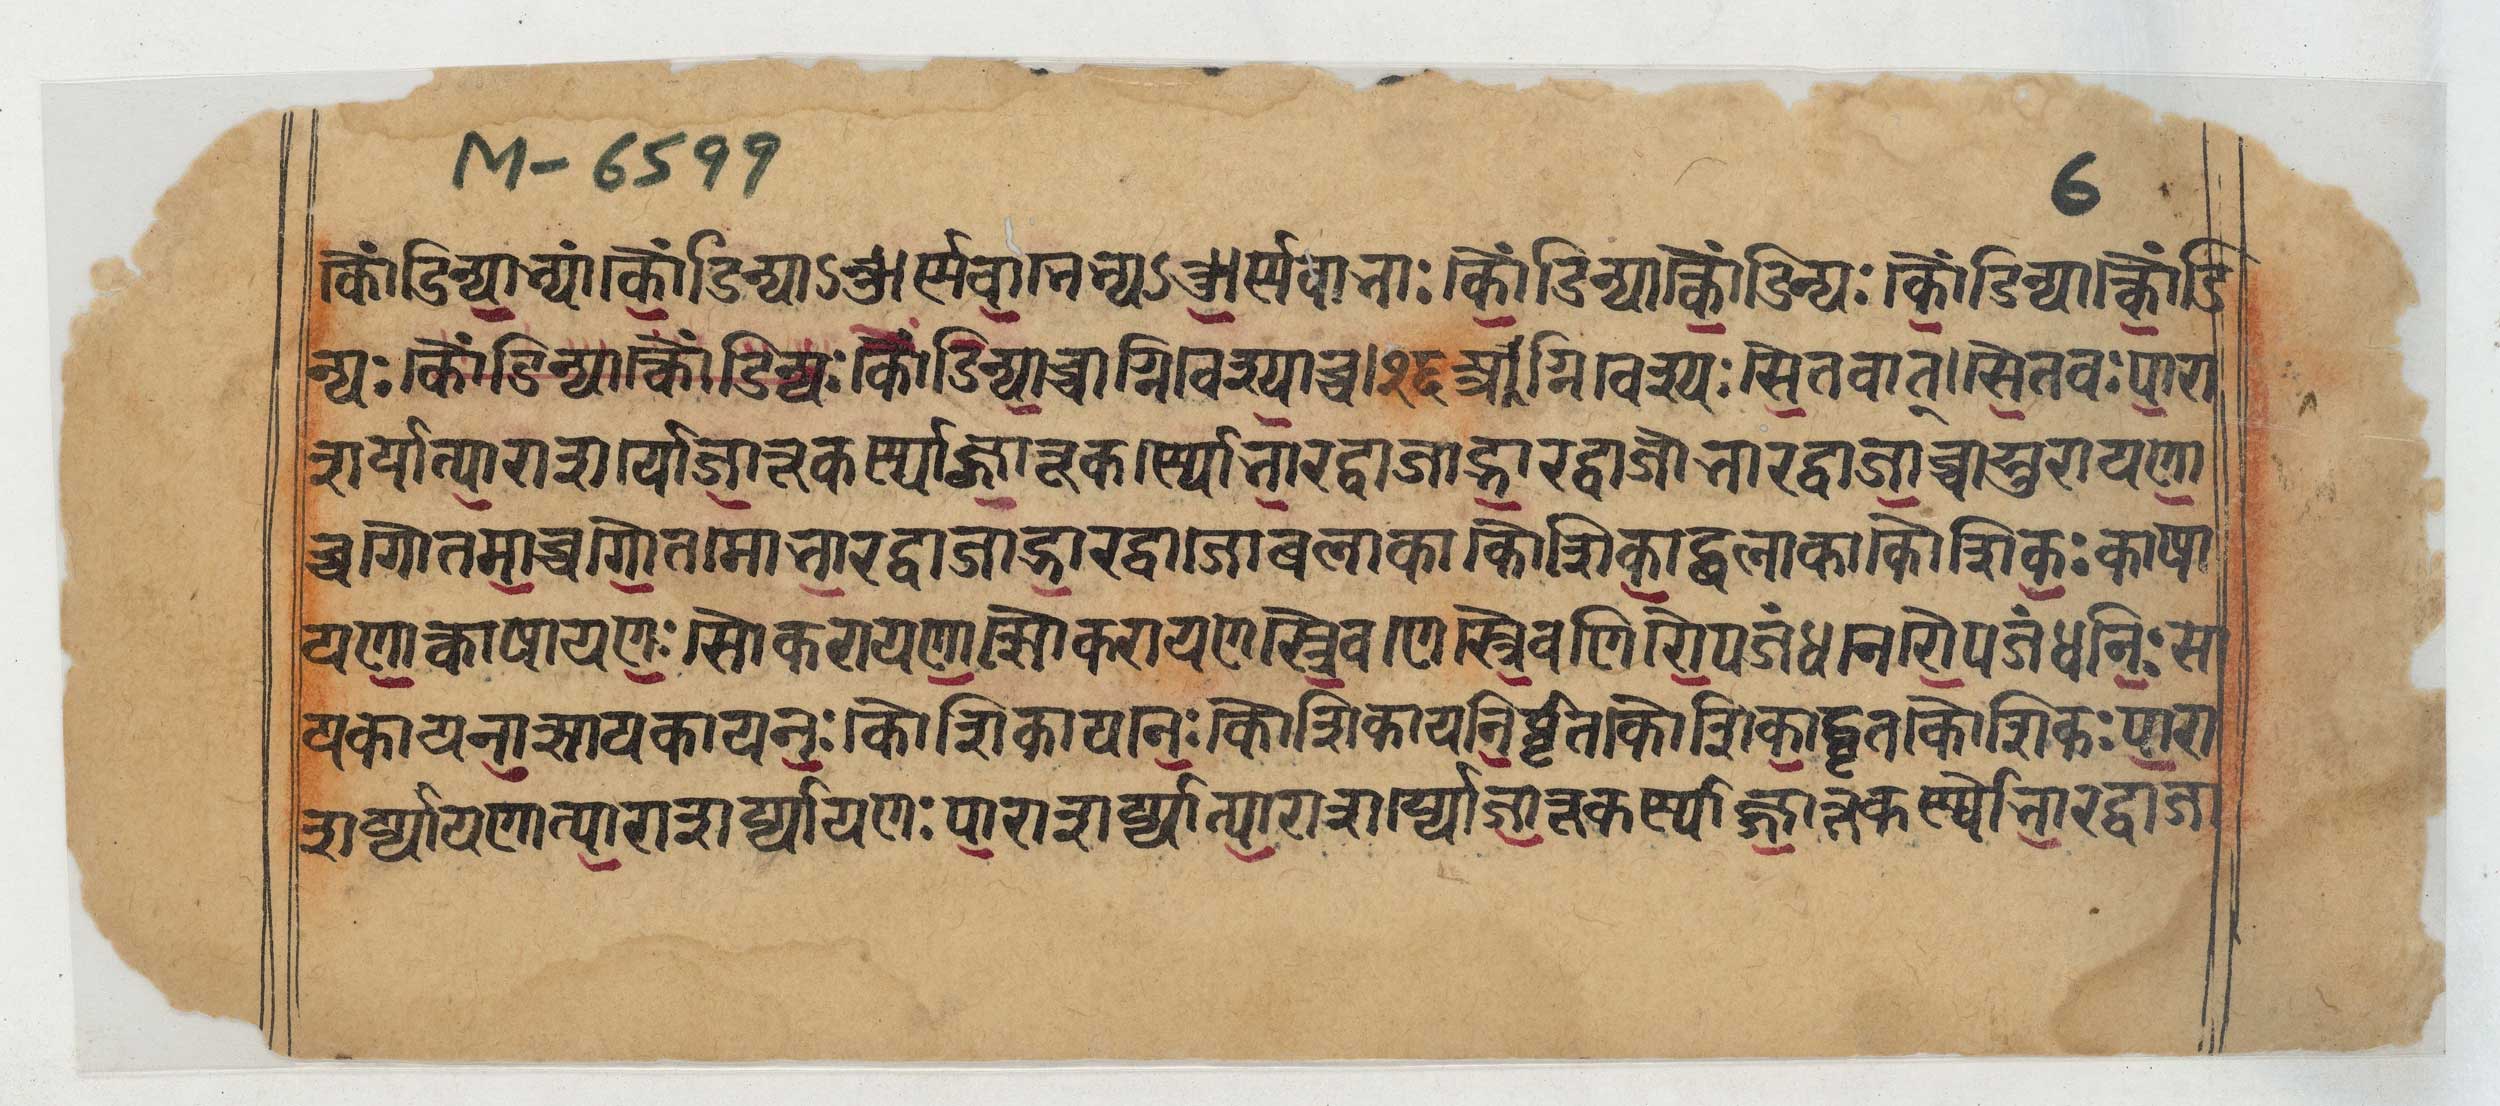 M-6599
6
कौंडिन्यान्यां कौंडिन्याऽत्रौर्स्मवानन्यऽत्रौर्स्मवानाः कौंडिन्यात्कौंडिन्यः कौंडिन्यात्कौंडि
न्यः कौंडिन्यात्कौंडिन्यः कौंडिन्याच्चाग्निवेश्याच्च।२६आग्निवेश्यः सैतवात्।सैतवः पारा
शर्यात्पाराशर्यो जातूकर्ण्याज्जातूकर्ण्यो भारद्वाजाद्भारद्वाजो भारद्वाजाच्चासुरायणा
च्च गौतमाच्च गौतमो भारद्वाजाद्भारद्वाजो बलाकाकौशिकाद्बलाकाकौशिकः काषा
यणात्काषायणः सौकरायणात्सौकरायणस्त्रैवणेस्त्रैवणिरौपजंधनेरौपजंधनिः सा
यकायनात्सायकायनः कौशिकायनेः कौशिकायनिर्घृतकौशिकाद्घृतकौशिकः पारा
शर्य्यायणात्पाराशर्य्यायणः पाराशर्य्यात्पाराशर्य्यो जातूकर्ण्याज्जातूकर्ण्यो भारद्वाजा